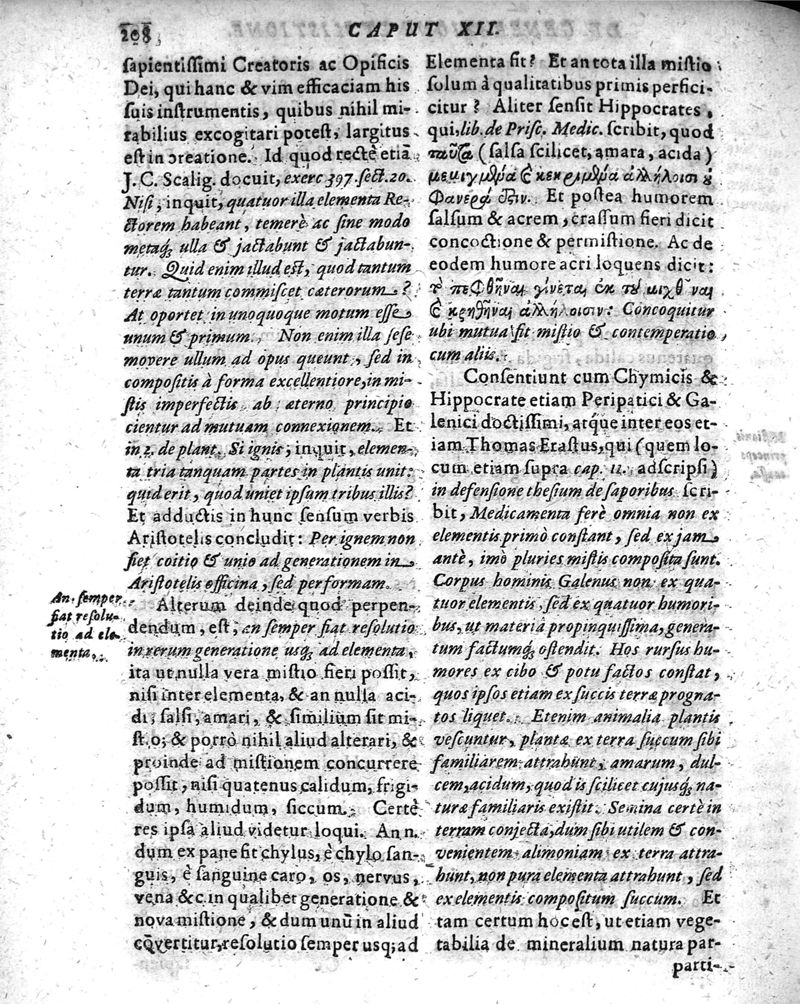 208
CAPUT XII.
sapientissimi Creatoris ac Opificis
Dei, qui hanc & vim efficaciam his
suis instrumentis, quibus nihil mi-
rabilius excogitari potest, largitus
est in creatione. Id quod rectè etiã
J. C. Scalig. docuit, exerc 397. sect. 20.
Nisi, inquit, quatuor illa elementa Re-
ctorem habeant, temerè ac sine modo
metaq; ulla & jactabunt & jactabun-
tur. Quid enim illud est, quod tantum
terræ tantum commiscet cæterorum?
At oportet in unoquoque motum esse
unum & primum. Non enim illa sese
movere ullum ad opus queunt, sed in
compositis à forma excellentiore, in mi-
stis imperfectis ab æterno principio
cientur ad mutuam connexionem. Et
in 2. de plant. Si ignis, inquit, elemen-
ta tria tanquam partes in plantis unit:
quid erit, quod uniet ipsum tribus illis?
Et adductis in hunc sensum verbis
Aristotelis concludit: Per ignem non
fiet coitio & unio ad generationem in
Aristotelis officina, sed per formam.
An semper
fiat resolu-
tio ad ele-
menta.
Alterum deinde quod perpen-
dendum, est, an semper fiat resolutio
in rerum generatione usq; ad elementa,
ita ut nulla vera mistio fieri possit,
nisi inter elementa, & an nulla aci-
di, salsi, amari, & similium sit mi-
st.o; & porrò nihil aliud alterari, &
proinde ad mistionem concurrere
possit, nisi quatenus calidum, frigi-
dum, humidum, siccum. Certè
res ipsa aliud videtur loqui. An n.
dum ex pane fit chylus, è chylo san-
guis, è sanguine caro, os, nervus,
vena &c. in qualibet generatione &
nova mistione, & dum unũ in aliud
cõvertitur, resolutio semper usq; ad
Elementa fit? Et an tota illa mistio
solum à qualitatibus primis perfici-
citur? Aliter sensit Hippocrates,
qui, lib. de Prisc. Medic. scribit, quod
ταῦτα (salsa scilicet, amara, acida)
μεμιγμένα καὶ κεκρημένα ἀλλήλοισι ὀυ
Φανερά ἐστιν. Et postea humorem
salsum & acrem, crassum fieri dicit
concoctione & permistione. Ac de
eodem humore acri loquens dicit:
τὸ πεφθῆναι γίνεται ἐκ τοῦ μιχθῆναι
καὶ κρηθῆναι ἀλλήλοισιν: Concoquitur
ubi mutua fit mistio & contemperatio
cum aliis.
Consentiunt cum Chymicis &
Hippocrate etiam Peripatici & Ga-
lenici doctissimi, atq́ue inter eos et-
iam Thomas Erastus, qui (quem lo-
cum etiam supra cap. 11. adscripsi)
in defensione thesium de saporibus scri-
bit, Medicamenta ferè omnia non ex
elementis primò constant, sed ex jam
antè, imò pluries mistis composita sunt.
Corpus hominis Galenus non ex qua-
tuor elementis, sed ex quatuor humori-
bus, ut materiâ propinquissima, genera-
tum factumq́; ostendit. Hos rursus hu-
mores ex cibo & potu factos constat,
quos ipsos etiam ex succis terræ progna-
tos liquet. Etenim animalia plantis
vescuntur, plantæ ex terra succum sibi
familiarem attrahunt, amarum, dul-
cem, acidum, quod is scilicet cujusq́; na-
turæ familiaris existit. Semina certè in
terram conjecta, dum sibi utilem & con-
venientem alimoniam ex terra attra-
hunt, non pura elementa attrahunt, sed
ex elementis compositum succum. Et
tam certum hoc est, ut etiam vege-
tabilia de mineralium natura par-
parti-